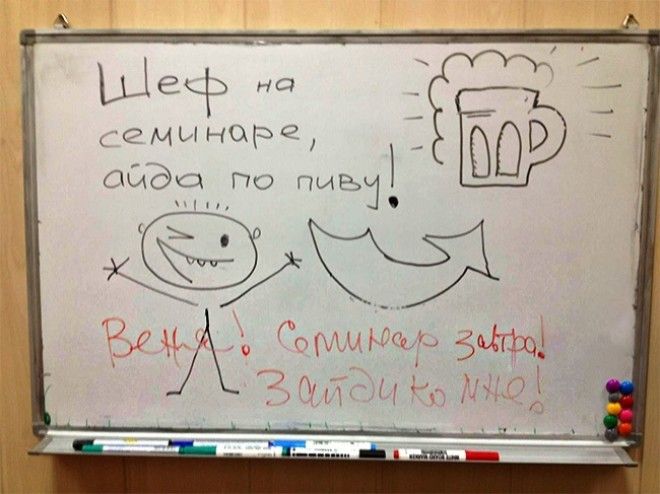 Шеф на
семинаре,
айда по пиву!
Веня! Семинар завтра!
Зайди ко мне!